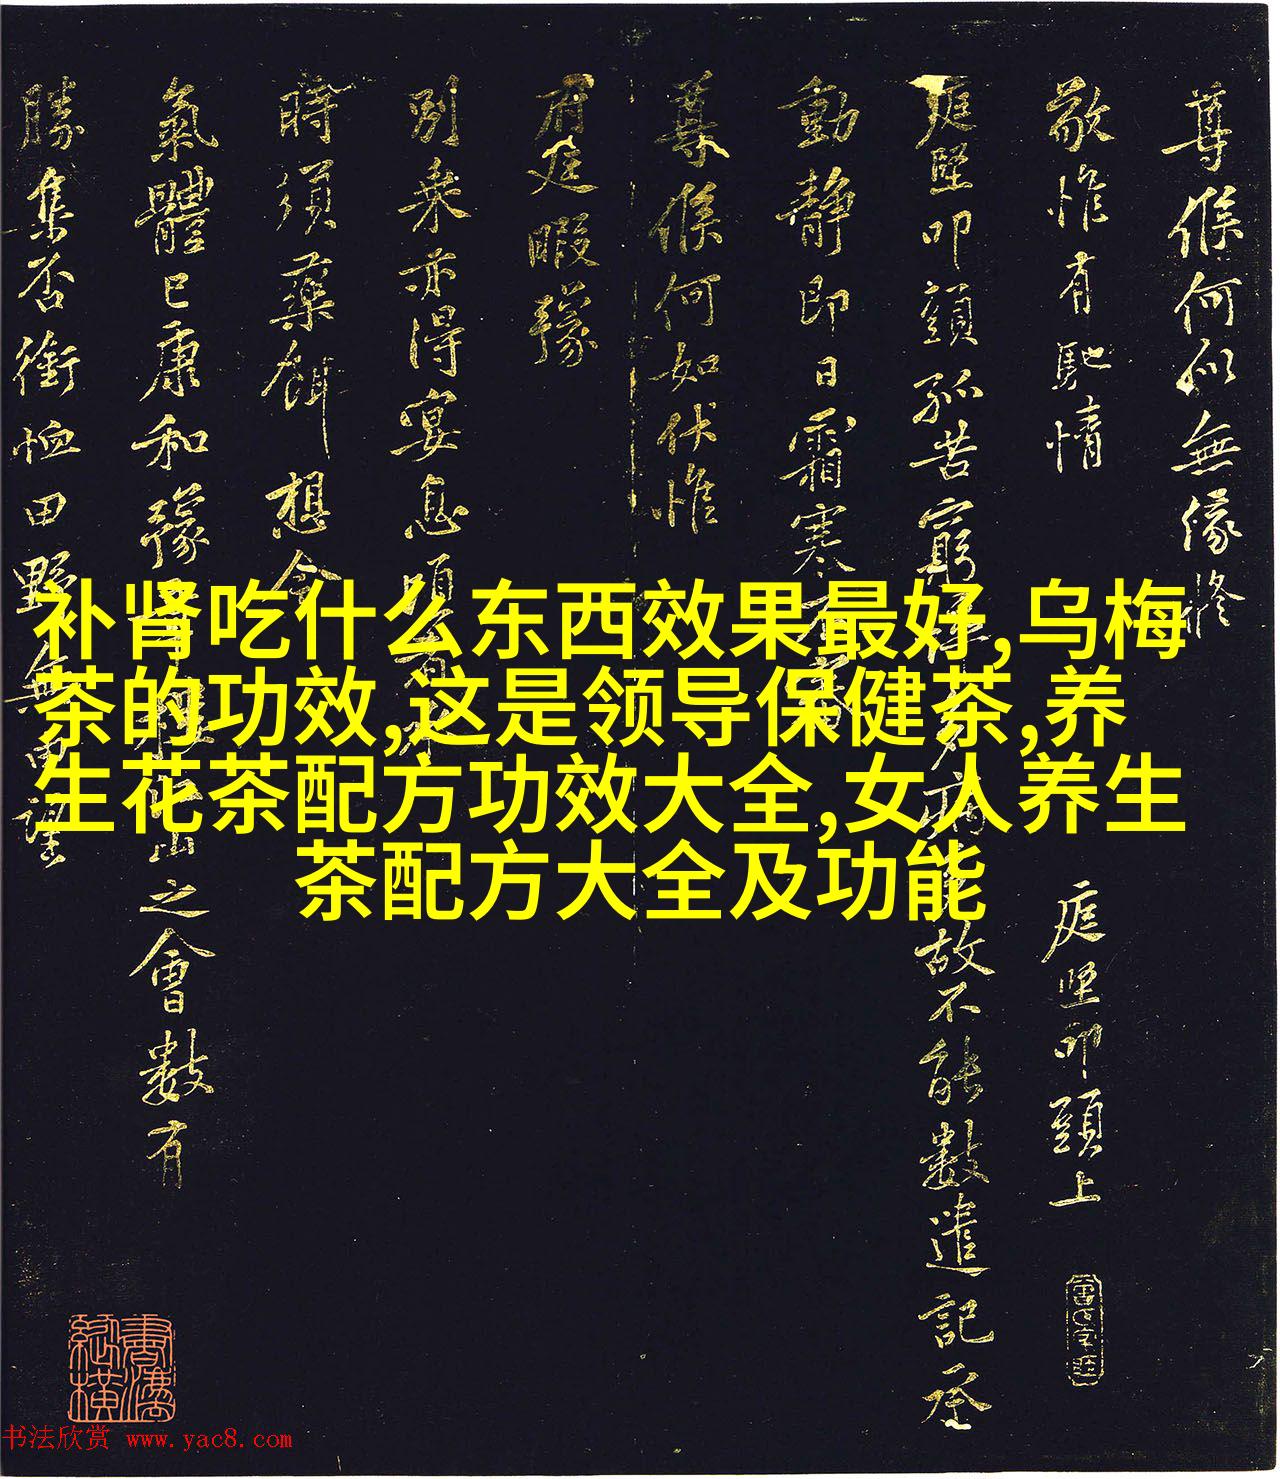 补肾吃什么东西效果最好,乌梅
茶的功效,这是领导保健茶,养
生花茶配方功效大全,女人养生
茶配方大全及功能
尊候何似無緣修
敬惟有馳情
庭堅叩頭上
庭堅叩頭孤苦窮
故不能數遣記承
動靜即日霜寒不審
尊候何如伏惟
府廷暇豫
別乘亦得宴息
時須藥餌想今
氣體已康和豫
山之會數有
勝集否銜恤田野無由望
书法欣赏 www.yac8.com